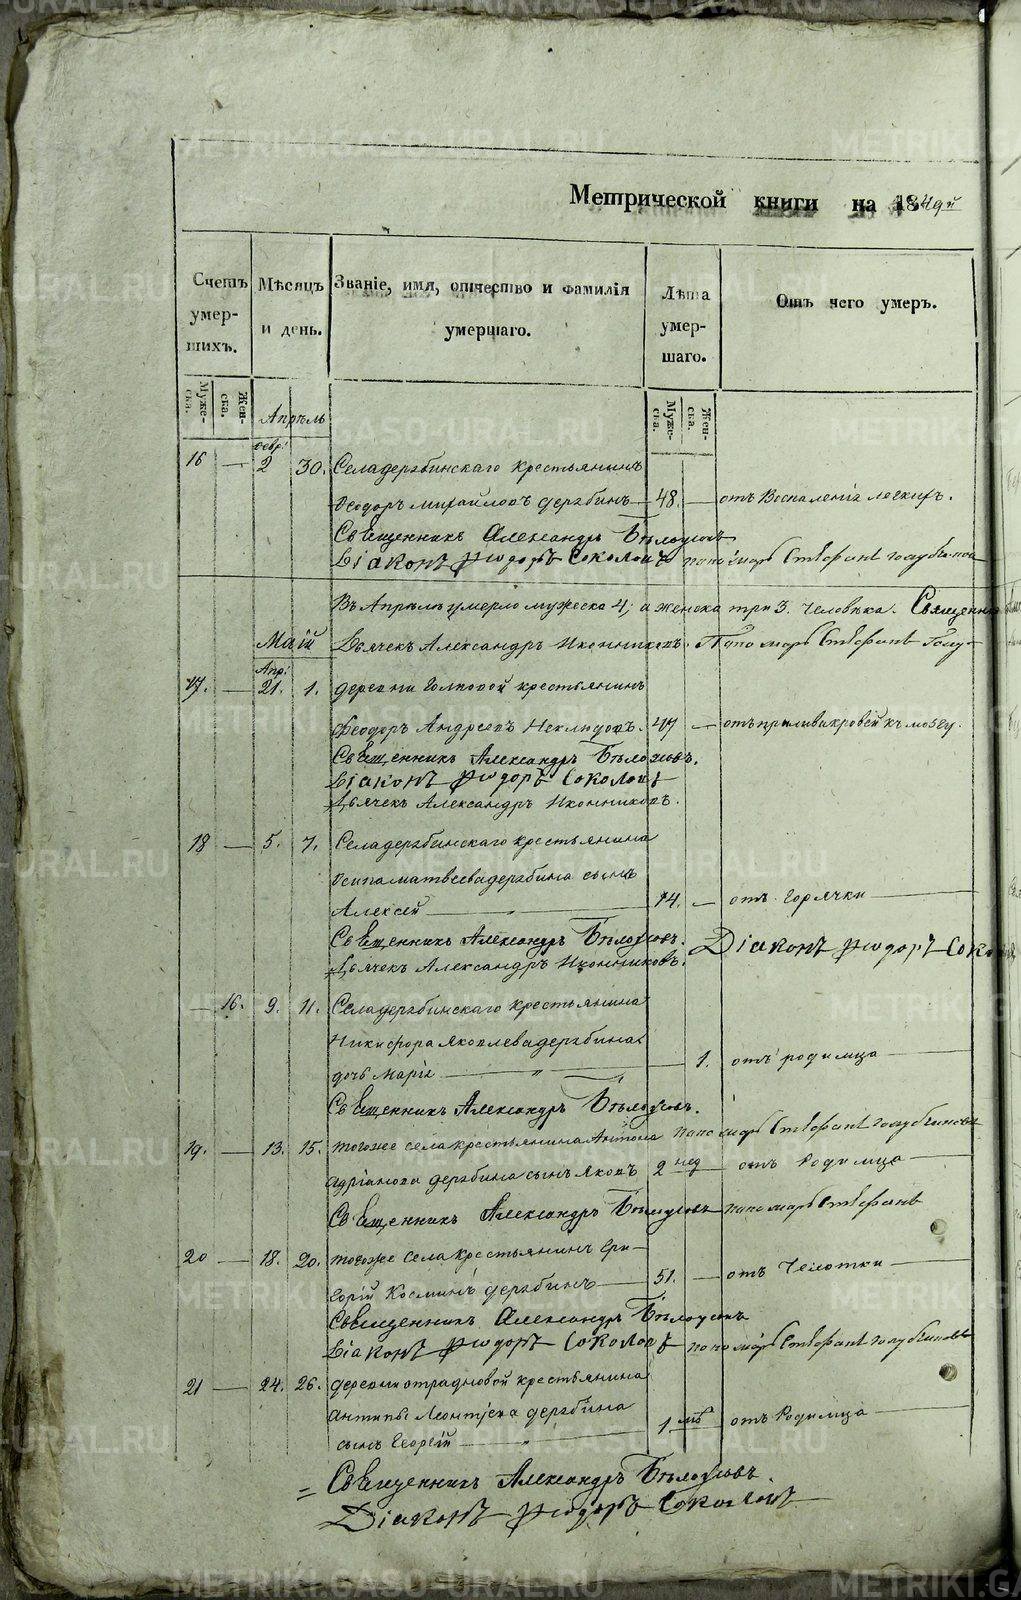 METRIKI.GASO-URAL.RU
Метрической книги на 184
Счетъ умер- шихъ.
Мѣсяцъ и день.
Званіе, имя, отчество и фамилія умершаго.
Лѣта умер- шаго.
Отъ чего умеръ.
Муже- ска.
Жен- ска.
Муже- ска.
Жен- ска.
Апрѣль
Февр:
16 — 2 30. Селадерябинскаго крестьянинъ
Феодоръ Михайловъ Дерябинъ — 48. — отъ Воспаленія легкихъ.
Священникъ Александръ Бѣлоусовъ
Діаконъ Ѳеодоръ Соколовъ пономарь Стефанъ Голубчиковъ
Въ Апрѣлѣ умерло мужеска 4, а женска три 3. Человѣка. Священни
Маій Дьячекъ Александръ Иконниковъ. Пономарь Стефанъ Голу-
Апр:
17. — 21. 1. деревни крестьянинъ
Феодоръ Андреевъ Неклюдовъ. 47 — отъ прилива кровей къ мозгу.
Священникъ Александръ Бѣлоусовъ.
Діаконъ Ѳеодоръ Соколовъ
Дьячекъ Александръ Иконниковъ.
18 — 5. 7. Селадерябинскаго крестьянина
Осипа Матвеева Дерябина сынъ
Алексей — " — 14. — отъ Горячки —
Священникъ Александръ Бѣлоусовъ. Діаконъ Ѳеодоръ Соколовъ
Дьячекъ Александръ Иконниковъ.
— 16. 9. 11. Селадерябинскаго крестьянина
Никифора Яковлева Дерябина
дочь Марія — " — 1. отъ родимца —
Священникъ Александръ Бѣлоусовъ.
пономарь Стефанъ Голубчиковъ
19. — 13. 15. тогоже села крестьянина Антона
Адріанова Дерябина сынъ Яковъ 2 нед — отъ Родимца —
Священникъ Александръ Бѣлоусовъ пономарь Стефанъ
20 — 18. 20. тогоже села крестьянинъ Гри-
горій Косминъ Дерябинъ — 51. — отъ Чехотки —
Священникъ Александръ Бѣлоусовъ
Діаконъ Ѳеодоръ Соколовъ пономарь Стефанъ Голубчиковъ
21 — 24. 26. деревни Отрадновой крестьянина
Антипы Леонтьева Дерябина
сынъ Георгій — " — 1. мѣ отъ Родимца —
Священникъ Александръ Бѣлоусовъ.
Діаконъ Ѳеодоръ Соколовъ